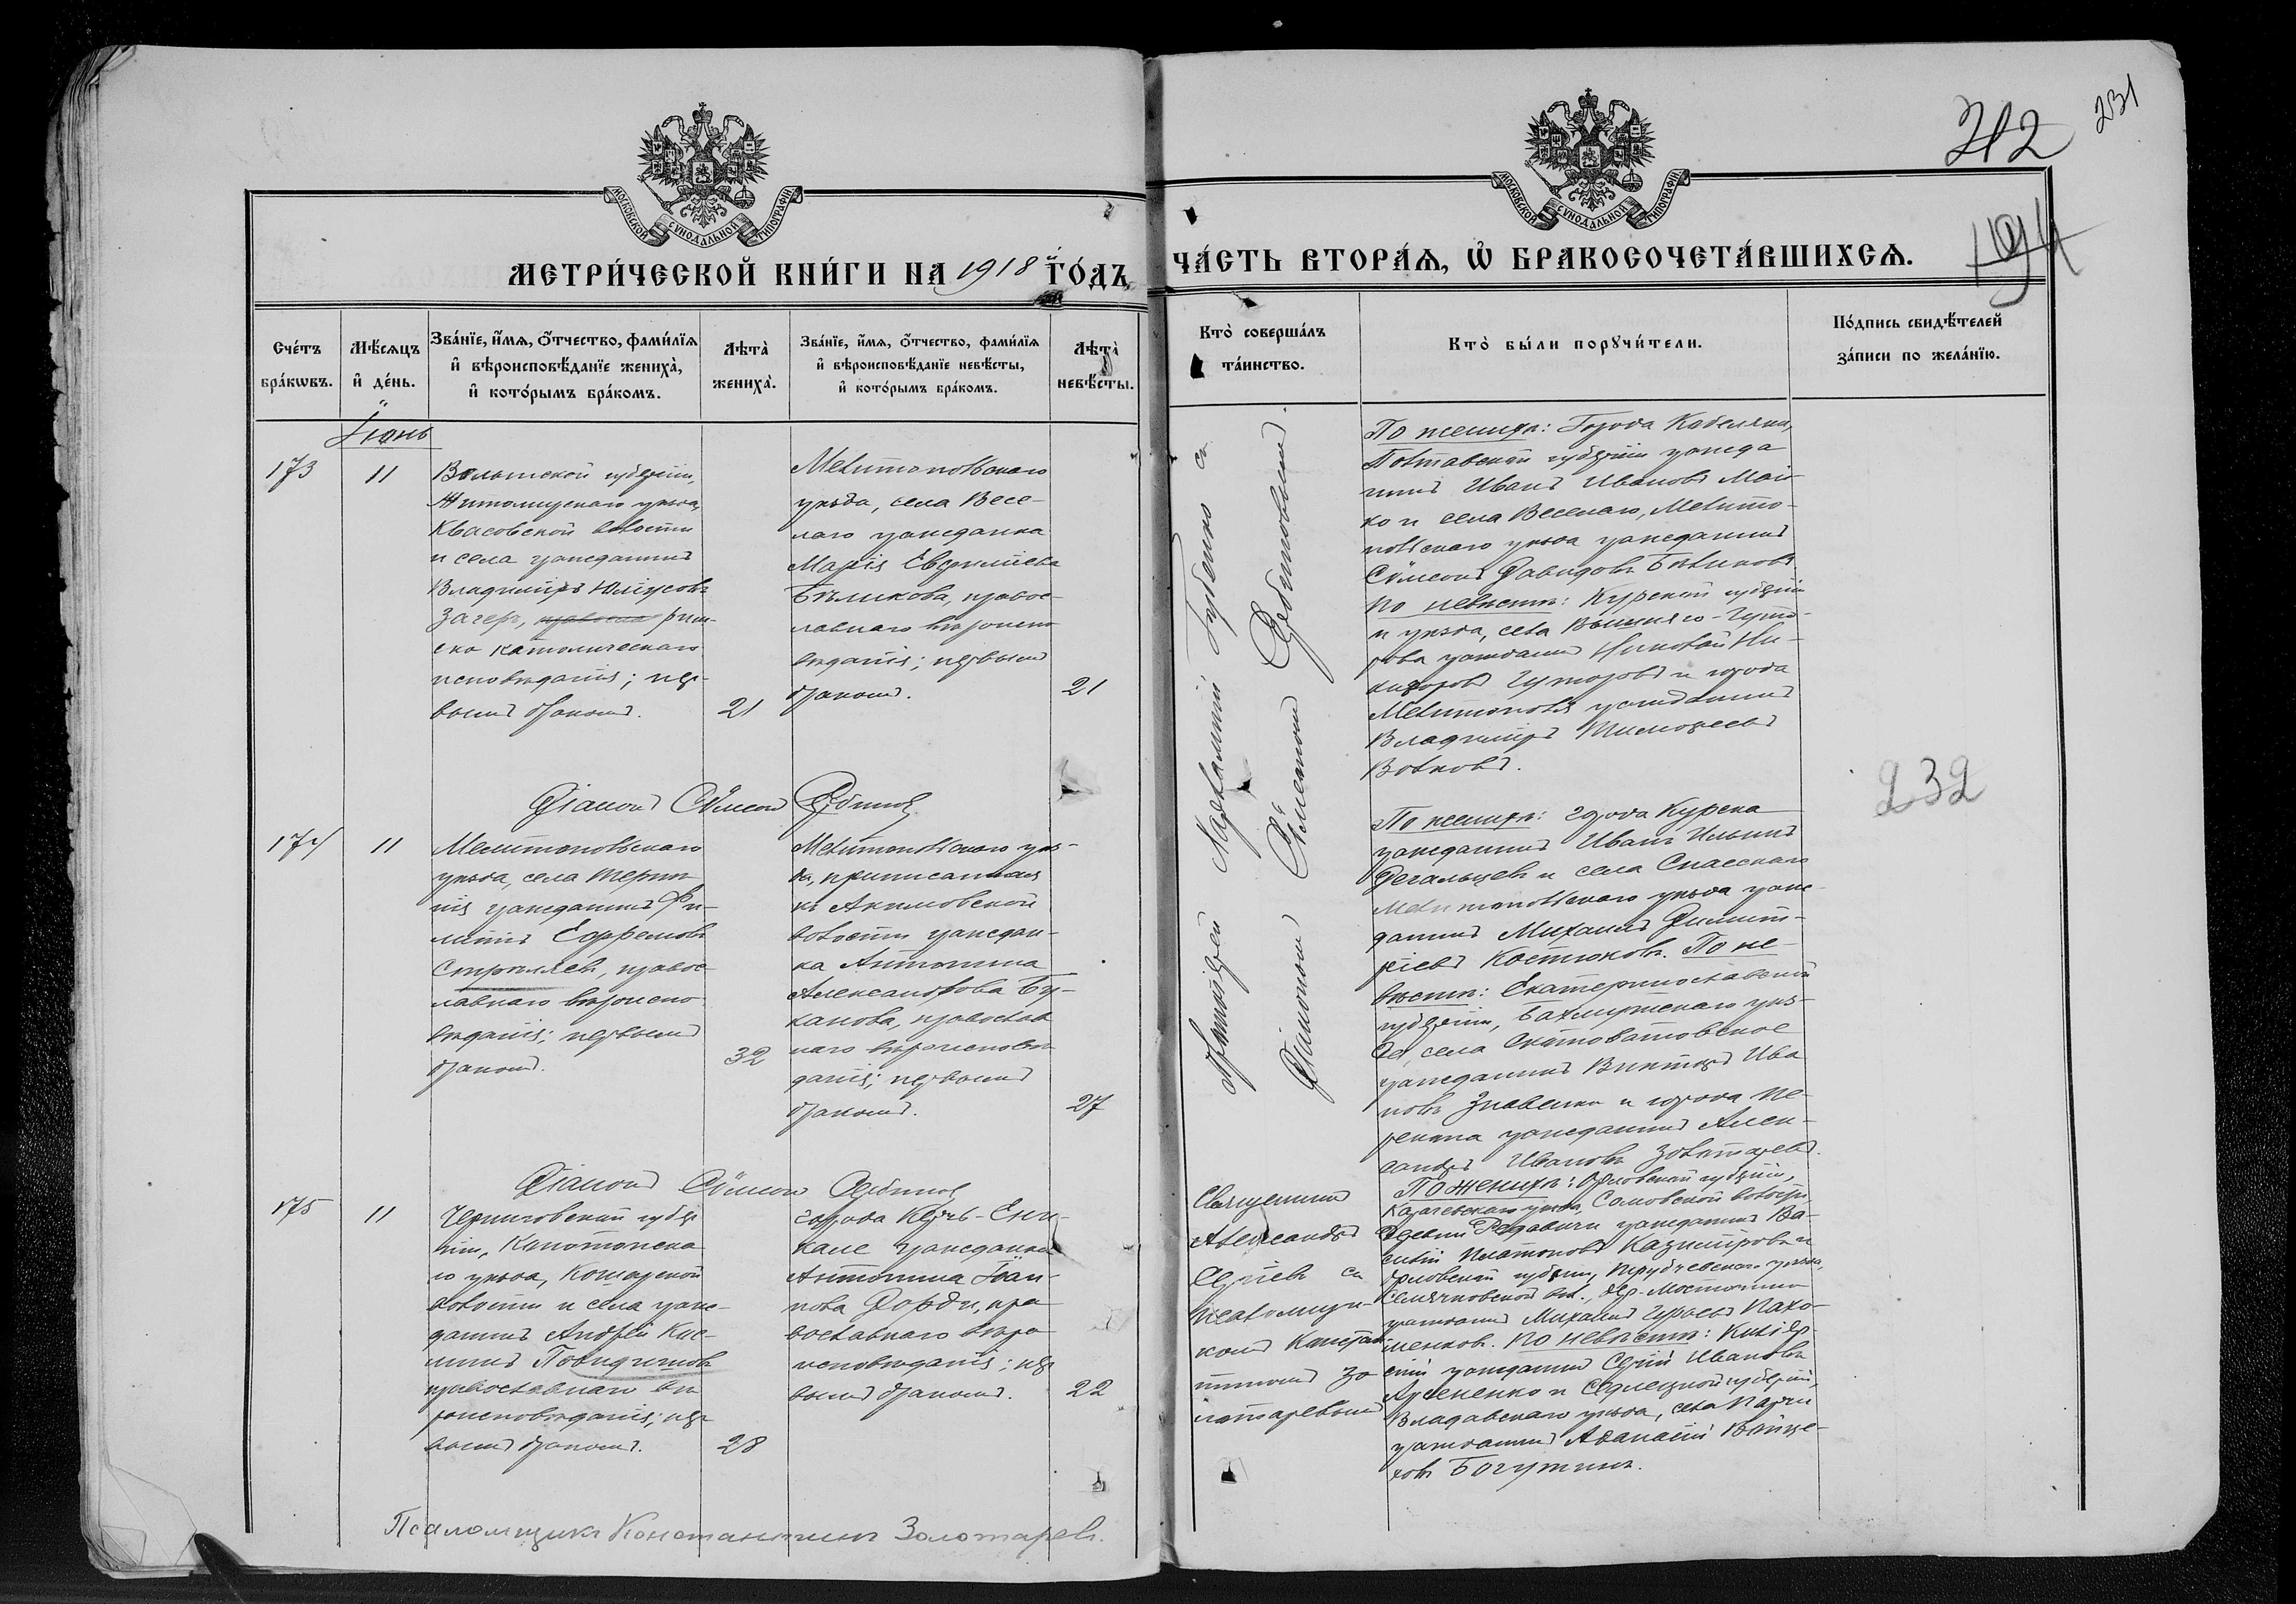 212
231
194
МОСКОВСКОЙ СѴНОДАЛЬНОЙ ТИПОГРАФІИ
МОСКОВСКОЙ СѴНОДАЛЬНОЙ ТИПОГРАФІИ
МЕТРИ́ЧЕСКОЙ КНИ́ГИ НА 1918й ГО́ДЪ,
ЧА́СТЬ ВТОРА́Ѧ, Ѡ҆ БРАКОСОЧЕТА́ВШИХСѦ.
Сче́тъ бра́кѡвъ.
Мѣ́сѧцъ и҆ де́нь.
Зва́нїе, и҆́мѧ, ѻ҆́тчество, фами́лїѧ и҆ вѣроисповѣ́данїе жениха̀, и҆ кото́рымъ бра́комъ.
Лѣта̀ жениха̀.
Зва́нїе, и҆́мѧ, ѻ҆́тчество, фами́лїѧ и҆ вѣроисповѣ́данїе невѣ́сты, и҆ кото́рымъ бра́комъ.
Лѣта̀ невѣ́сты.
Кто̀ соверша́лъ та́инство.
Кто̀ бы́ли порꙋчи́тели.
По́дпись свидѣ́телей за́писи по жела́нїю.
Іюнь
173
11
Волынской губерніи,
Житомирскаго уѣзда,
Квасовской волости
и села гражданинъ
Владиміръ Юліусовъ
Загеръ, рим-
ско католическаго
исповѣданія; пер-
вымъ бракомъ.
21
Мелитопольскаго
уѣзда, села Весе-
лаго гражданка
Марія Евфиміева
Бѣликова, правос-
лавнаго вѣроиспо
вѣданія; первымъ
бракомъ.
21
Протоіерей Губенко съ
Діакономъ Сѵмеономъ
По женихѣ: Города Кобелякъ,
Полтавской губерніи гражда
нинъ Иванъ Ивановъ Мой-
ко и села Веселаго, Мелито-
польскаго уѣзда гражданинъ
Сѵмеонъ Давидовъ Бѣликовъ.
По невѣстѣ: Курской губерніи
и уѣзда, села
гражданинъ Николай Ни-
кифоровъ и города
Мелитополя гражданинъ
Владиміръ Тимофеевъ
Волковъ.
Діаконъ Сѵмеонъ
174
11
Мелитопольскаго
уѣзда, села Терпѣ-
нія гражданинъ Фи-
липпъ Ефремовъ
Стрѣляевъ, правос-
лавнаго вѣроиспо
вѣданія; первымъ
бракомъ.
32
Мелитопольскаго уѣз-
да, приписанная
къ Акимовской
волости граждан-
ка Антонина
Александрова Бу-
канова, православ
наго вѣроисповѣ
данія; первымъ
бракомъ.
27
По женихѣ: города Курска
гражданинъ Иванъ Ильинъ
Дегальцевъ и села Спасскаго
Мелитопольскаго уѣзда граж-
данинъ Михаилъ Димит-
ріевъ Костюковъ. По не-
вѣстѣ: Екатеринославской
губерніи, Бахмутскаго уѣз-
да, села Скотоватовское
гражданинъ Викторъ Ива
новъ Зновенко и города Пе-
рекопа гражданинъ Алек-
сандръ Ивановъ Золотаревъ.
232
Діаконъ Сѵмеонъ
175
11
Черниговской губер
ніи, Конотопска
го уѣзда,
волости и села граж-
данинъ Андрей Кос-
минъ
православнаго вѣ
роисповѣданія; пер
вымъ бракомъ.
28
города Керчь-Ени-
кале гражданка
Антонина Іоан-
нова Дорди, пра
вославнаго вѣро
исповѣданія; пер
вымъ бракомъ.
22
Священникъ
Александръ
Сергіевъ съ
псаломщи-
комъ Констан-
тиномъ Зо
лотаревымъ
По женихѣ: Орловской губерніи,
Карачевскаго уѣзда, волости,
гражданинъ Ва-
силій Платоновъ и
Орловской губерніи, Трубчевскаго уѣзда,
вол., дер.
гражданинъ Михаилъ Пахо-
менковъ. По невѣстѣ:
гражданинъ Сергій Ивановъ
Арсененко и Сѣдлецкой губерніи,
Владавскаго уѣзда, села
гражданинъ Афанасій
Псаломщикъ Константинъ Золотаревъ.